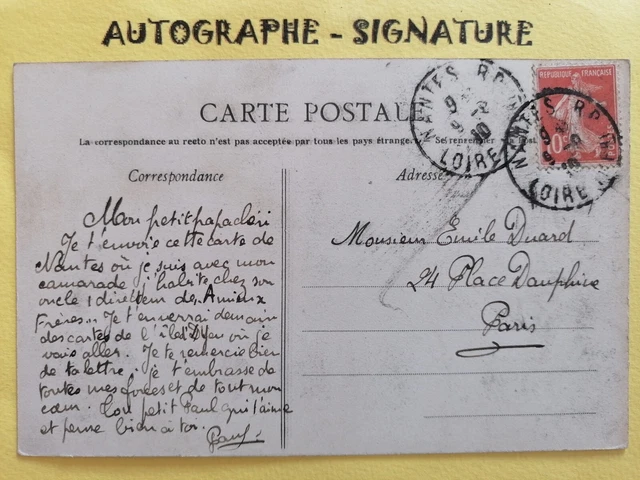 AUTOGRAPHE - SIGNATURE
CARTE POSTALE
La correspondance au recto n'est pas acceptée par tous les pays étranger. Se renseigner
Correspondance
Adresse
REPUBLIQUE FRANÇAISE
10
NANTES R.P.
LOIRE
NANTES R.P.
LOIRE
Mon petit papa chéri
Je t'envoie cette carte de
Nantes où je suis avec mon
camarade j'habite chez son
oncle directeur des Amieux
Frères... Je t'enverrai demain
des cartes de l'île D'Yeu où je
vais aller. Je te remercie bien
de ta lettre. je t'embrasse de
toutes mes forces et de tout mon
cœur. Ton petit Paul qui t'aime
et pense bien à toi.
Paul
Monsieur Emile Duard
24 Place Dauphine
Paris